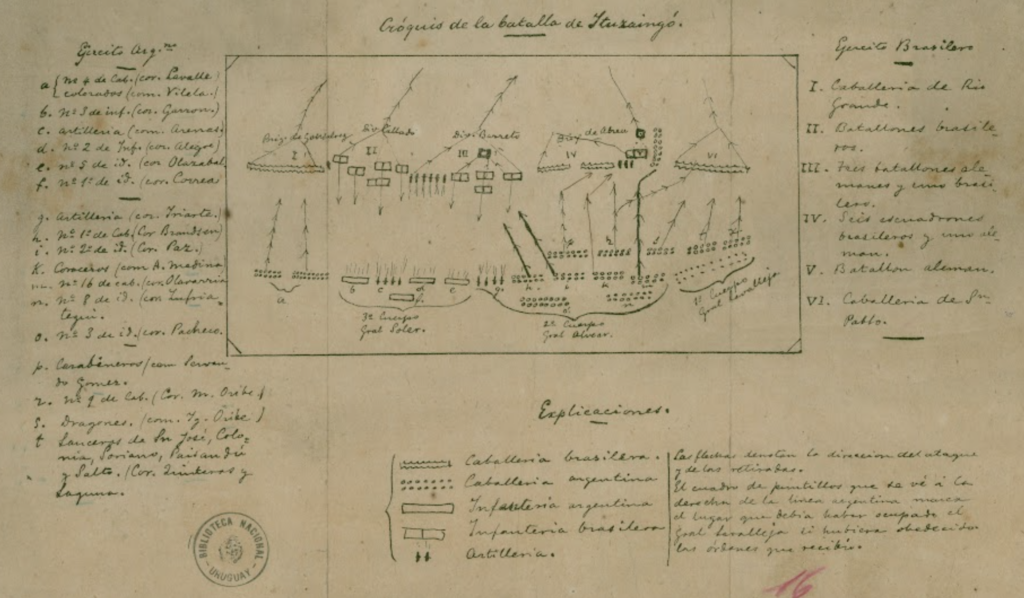 Cróquis de la batalla de Ituzaingó.
Ejército Arg.no
a { Nº 4 de Cab. (cor. Lavalle)
colorados (com. Vilela.)
b. Nº 3 de inf. (cor. Garzon.)
c. artilleria (com. Arenas)
d. Nº 2 de Inf. (cor. Alegre)
e. Nº 5 de id. (cor. Olazabal
f. Nº 1º de id. (cor. Correa
g. artilleria (cor. Iriarte.)
h. Nº 1º de Cab. (Cor Brandsen)
i. Nº 2º de id. (Cor. Paz.)
K. Coraceros (com A. Medina)
m. Nº 16 de cab. (cor. Olavarria
n. Nº 8 de id. (cor. Zufria-
tegui.
o. Nº 3 de id. (cor. Pacheco.
p. Carabineros (com Servan-
do Gomez.
r. Nº 9 de Cab. (Cor. M. Oribe)
s. Dragones. (com. Ig. Oribe)
t Lanceros de Sn José, Colo-
nia, Soriano, Paisandú
y Salto. (Cor.
Laguna.
Brig. de
Div. Callado
Div. Barreto
de Abreu
I
II
III
IV
V
VI
a
b c d e
3r Cuerpo
Gral Soler.
g.
2º Cuerpo
Gral Alvear.
1r Cuerpo
Gral Lavalleja
Ejercito Brasilero
I. Caballeria de Rio
Grande.
II. Batallones brasile-
ros.
III. tres batallones ale
manes y uno brasi-
lero.
IV. Seis escuadrones
brasileros y uno ale-
man.
V. Batallon aleman.
VI. Caballeria de Sn
Pablo.
Explicaciones.
Caballeria brasilera.
Caballeria argentina
Infanteria argentina
Infanteria brasilera
Artilleria.
Las flechas denotan la direccion del ataque
y de las retiradas.
El cuadro de puntillos que se vé á la
derecha de la linea argentina marca
el lugar que debia haber ocupado el
Gral Lavalleja si hubiera obedecido
las órdenes que recibió.
BIBLIOTECA NACIONAL
URUGUAY
16